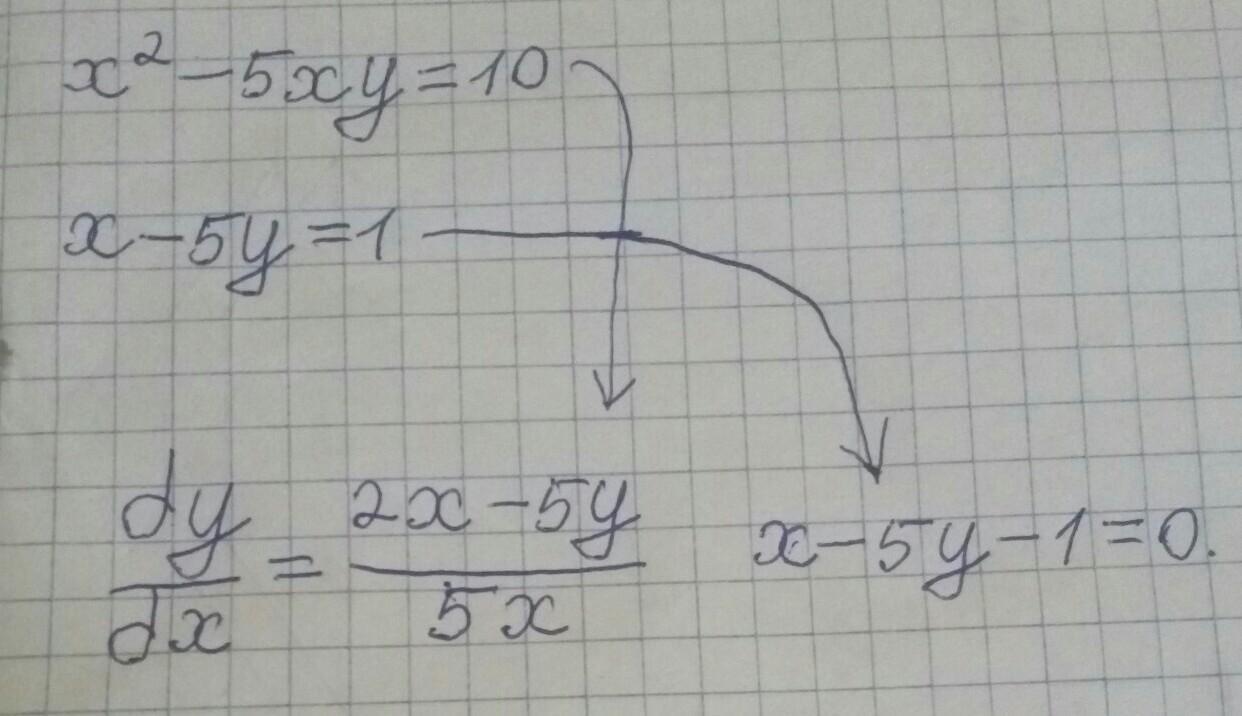 x² - 5xy = 10
x - 5y = 1
dy/dx = (2x - 5y)/(5x)
x - 5y - 1 = 0.